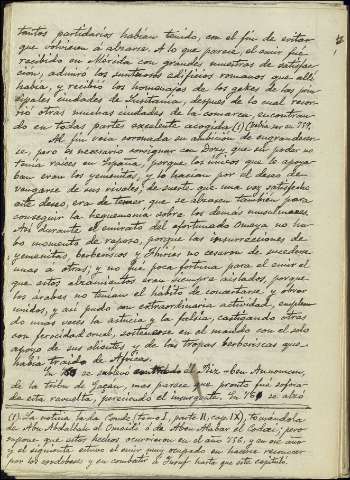 tantos partidarios habian tenido, con el fin de evitar
que volvieran á alzarse. A lo que parece, el emir fué
recibido en Mérida con grandes muestras de satisfac-
cion, admiró los suntuosos edificios romanos que allí
habia, y recibió los homenajes de los jekes de las prin-
cipales ciudades de Lusitania, despues de lo cual recor-
rió otras muchas ciudades de la comarca, encontran-
do en todas partes excelente acogida (1)
Al fin veia coronada su ambicion de engrandecer-
se, pero es necesario consignar con Dozy, que su poder no
tenia raices en España, porque los unicos que le apoya-
ban eran los yemenitas, y lo hacian por el deseo de
vengarse de sus rivales, de suerte que una vez satisfecho
este deseo, era de temer que se alzasen tambien para
conseguir la hegemonia sobre los demás musulmanes.
Así durante el emirato del afortunado Omeya no hu-
bo momento de reposo, porque las insurrecciones de
yemenitas, berberiscos y fihries no cesaron de sucederse
unas a otras, y no fué poca fortuna para el emir el
que estos alzamientos eran siempre aislados, porque
los árabes no tenian el hábito de concertarse y obrar
unidos, y así pudo con extraordinaria actividad, emplean-
do unas veces la astucia y la felonia, castigando otras
con ferocidad cruel, sostenerse en el mando con el solo
apoyo de sus clientes, y de las tropas berberiscas que
habia traido de Africa.
En se sublevó ben Annoman,
de la tribu de mas parece que pronto fué sofoca-
da esta revuelta, pereciendo el insurgente. En se alzó
(1) La noticia la da Conde (tomo I, parte II, cap. IX), tomándola
de Abu Abdallah el ó de Aben Alabar el pero
supone que estos hechos ocurrieron en el año 756, y en ese año
y el siguiente estuvo el emir muy ocupado en hacerse reconocer
por los cordobeses y en combatir á Yusuf hasta que este capituló.